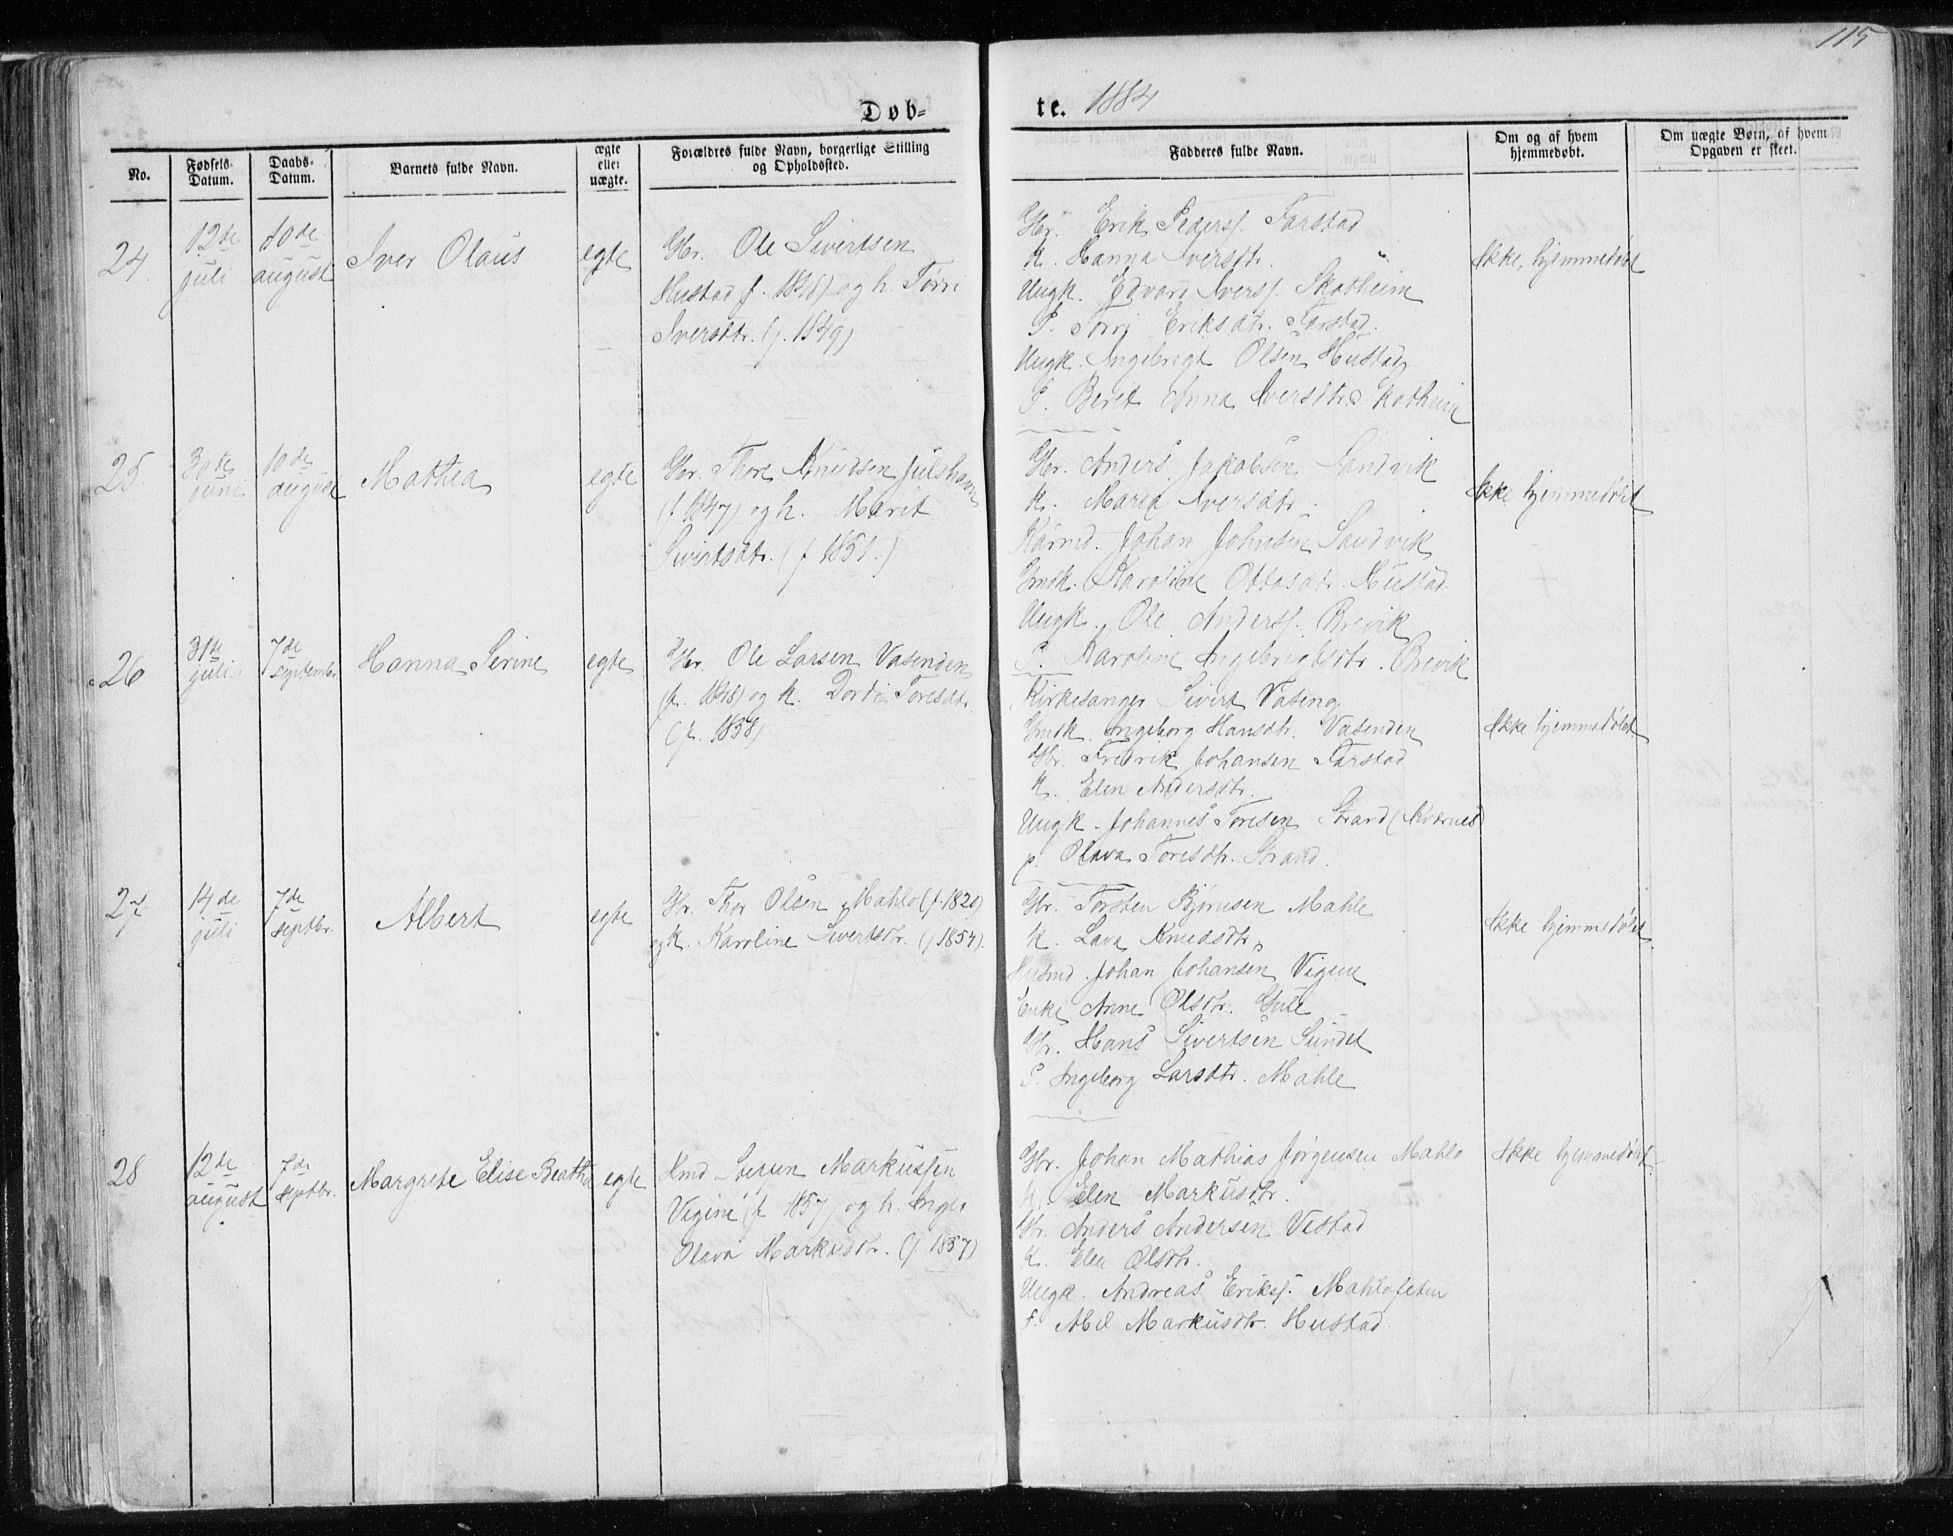 115
Døb-
te. 1884
No.
Fødsels-
Datum.
Daabs-
Datum.
Barnets fulde Navn.
ægte
eller
uægte.
Forældres fulde Navn, borgerlige Stilling
og Opholdssted.
Fadderes fulde Navn.
Om og af hvem
hjemmedøbt.
Om uægte Børn, af hvem
Opgaven er skeet.
24.
12te
juli
10de
august
Iver Olaus
egte
Gbr. Ole Sivertsen
Hustad (f. 1848) og h.
Iversdtr. (f. 1849)
Gbr. Erik Peders. Farstad
K. Hanna Iversdtr.
Ungk. Edvard Ivers. Skotheim
P. Eriksdtr. Farstad.
Ungk. Ingebrigt Olsen Hustad
P. Beret Anna Iversdtr. Skotheim
Ikke hjemmedøbt
25.
30te
juni
10de
august
Mathea
egte
Gbr. Thore Knudsen Julshavn
(f. 1847) og h. Marit
Sivertsdtr. (f. 1851.)
Gbr. Anders Jakobsen Sandvik
K. Maria Iversdtr.
Kårmd. Johan Johnsen Sandvik
Gmdk. Karoline Ottosdtr. Hustad
Ungk. Ole Anders. Brevik
P. Karoline Ingebrigtsdtr. Brevik
Ikke hjemmedøbt
26
31te
juli
7de
september
Hanna Serine
egte
Gbr. Ole Larsen Vasenden
(f. 1848) og k. Dordi Toresdtr.
(f. 1858)
Kirkesanger Sivert Vaseng
Gmdk. Ingeborg Hansdtr. Vasenden
Gbr. Fredrik Johansen Farstad
K. Elen Andersdtr.
Ungk. Johannes Toresen Strand (Kværnes)
p. Olava Toresdtr. Strand.
Ikke hjemmedøbt
27
14de
juli
7de
septbr.
Albert
egte
Gbr. Thor Olsen Mahlo (f. 1820)
og k. Karoline Sivertsdtr. (f. 1854).
Gbr. Torsten Bjørnsen Mahle
K. Lava Knudsdtr.
Husmd. Johan Johansen Vigene
Enke Anne Olsdtr. Gule
Gbr. Hans Sivertsen Sundet
P. Ingeborg Larsdtr. Mahle
Ikke hjemmedøbt
28
12te
august
7de
septbr.
Margrete Elise Beatha
egte
Hmd. Markussen
Vigene (f. 1857) og h.
Olava Markusdtr. (f. 1857)
Gbr. Johan Mathias Jørgensen Mahlo
K. Elen Markusdtr.
Gbr. Anders Andersen Vestad
K. Elen Olsdtr.
Ungk. Andreas Eriks.
P. Markusdtr. Hustad.
Ikke hjemmedøbt